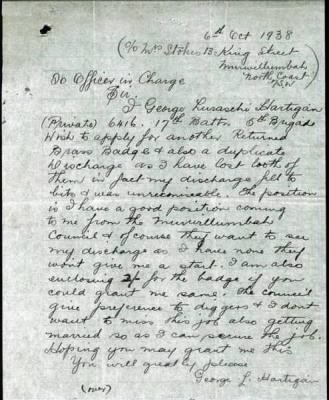 6th Oct 1938
(C/o Mrs Stokes 13 King Street
Murwillumbah
North Coast
NSW
To Officer in Charge
Sir,
I George Luraschi Hartigan
(Private) 6416. 17th Battn. 5th Brigade
Wish to apply for another Returned
Brass Badge & also a duplicate
Discharge as I have lost both of
them in fact my discharge fell to
bits & was unreconisable. The position
is I have a good position coming
to me from the Murwillumbah
Council & of course they want to see
my discharge as I have none they
wont give me a start. I am also
enclosing 2/- for the badge if you
could grant me same. The Council
give preference to diggers & I dont
want to miss this job also getting
married so as I can secure the job.
Hoping you may grant me this
You will greatly please
George L. Hartigan
(over)